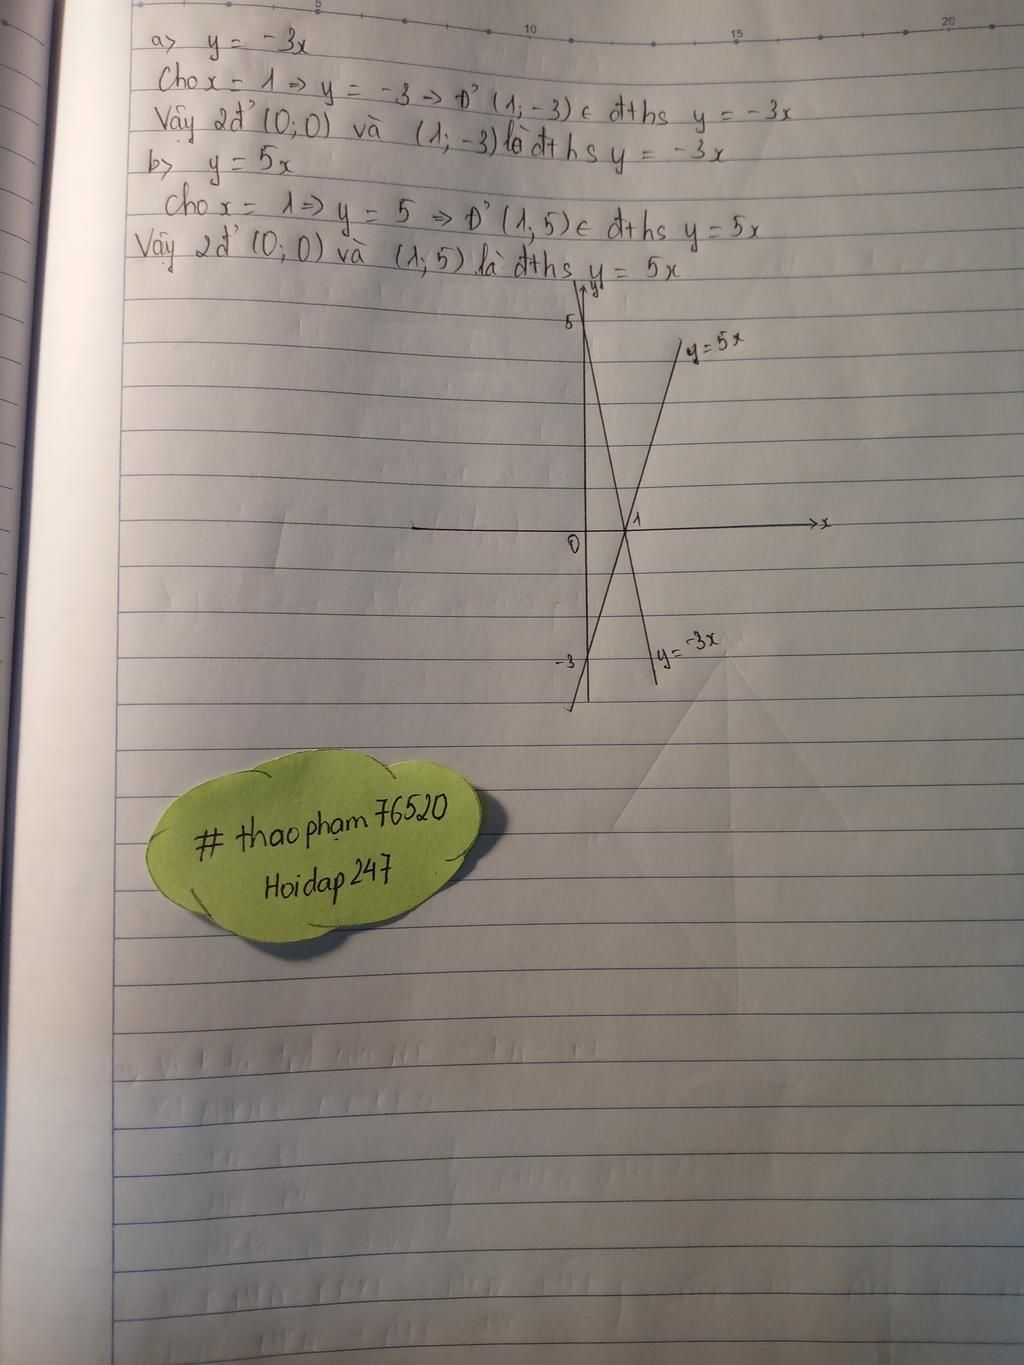 5 10 15 20
a> y = -3x
Cho x = 1 => y = -3 => Đ' (1; -3) ∈ đths y = -3x
Vậy 2đ' (0; 0) và (1; -3) là đths y = -3x
b> y = 5x
Cho x = 1 => y = 5 => Đ' (1; 5) ∈ đths y = 5x
Vậy 2đ' (0; 0) và (1; 5) là đths y = 5x
y
5
y = 5x
1
x
0
-3
y = -3x
# thaophạm76520
Hoidap247